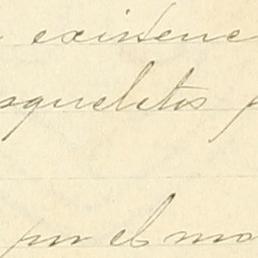 existenc
squeletos p
por el mo